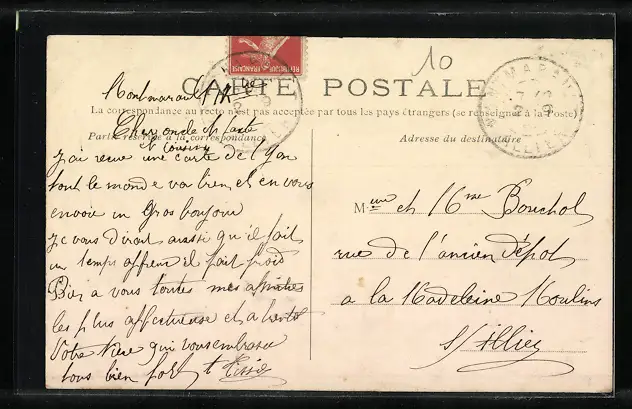 10
RÉPUBLIQUE FRANÇAISE
CARTE POSTALE
La correspondance au recto n'est pas acceptée par tous les pays étrangers (se renseigner à la Poste)
Partie réservée à la correspondance
Adresse du destinataire
Montmarault
Cher oncle et tante
et cousins
J'ai reçue une carte de Lyon
tout le monde va bien et en vous
envoie un Gros bonjour
Je vous dirait aussi qu'il fait
un temps affreux il fait froid
Bien a vous toutes mes amitiés
les plus affectueuse et a bientot
Votre Nièce qui vous embrasse
tous bien fort
Mme et Mme Bouchot
rue de l'ancien dépot
a la Madeleine Moulins
s/Allier